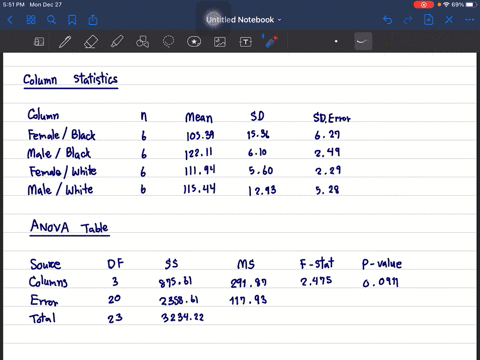 5:51 PM Mon Dec 27
69%
Untitled Notebook
Column Statistics
Column n Mean SD SD.Error
Female / Black 6 105.39 15.36 6.27
Male / Black 6 122.11 6.10 2.49
Female / White 6 111.94 5.60 2.29
Male / White 6 115.44 12.93 5.28
ANOVA Table
Source DF SS MS F-stat P-value
Columns 3 875.61 291.87 2.475
Error 20 2358.61 117.93
Total 23 3234.22